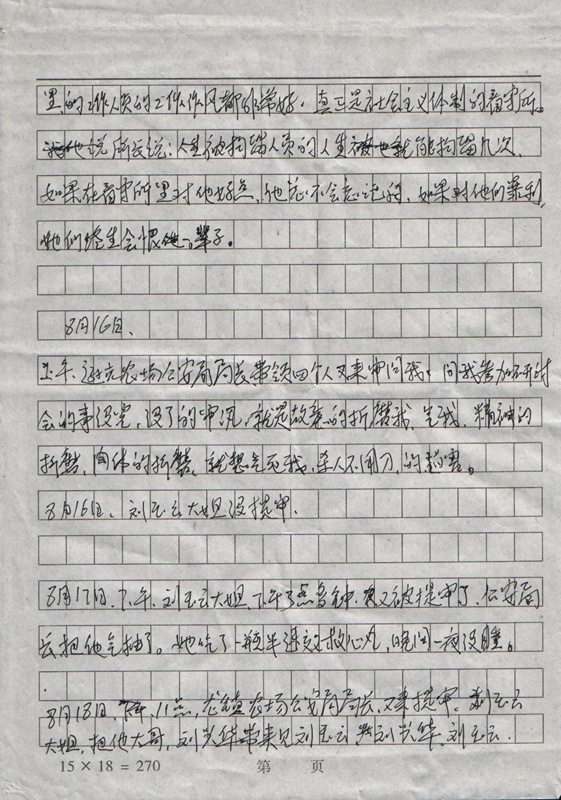 里的工作人员的工作作风都非常好。真正是社会主义体制的看守所。
他说所长说：人生被拘留人员的人生被他能拘留几次，
如果在看守所里对他好点，他忘不会忘记，如果对他们
她们终生会恨他一辈子。
8月16日、
上午、农场公安局局长带领四个人又来审问我。问我参加研讨
会的事没完，没了的审讯，就是故意的折磨我，气我，精神的
折磨，肉体的折磨，就想气死我，杀人不用刀，的
8月16日、刘玉云大姐没提审，
8月17日、下午，刘玉云大姐，下午3点多钟，又被提审了，公安局
长把他气抽了。她吃了一瓶半速效救心丸，晚间一夜没睡。
8月18日、11点，龙镇农场公安局局长，又来提审，刘玉云
大姐，把他大哥，刘兴华带来见刘玉云 刘兴华，刘玉云．
15 × 18 = 270 第 页